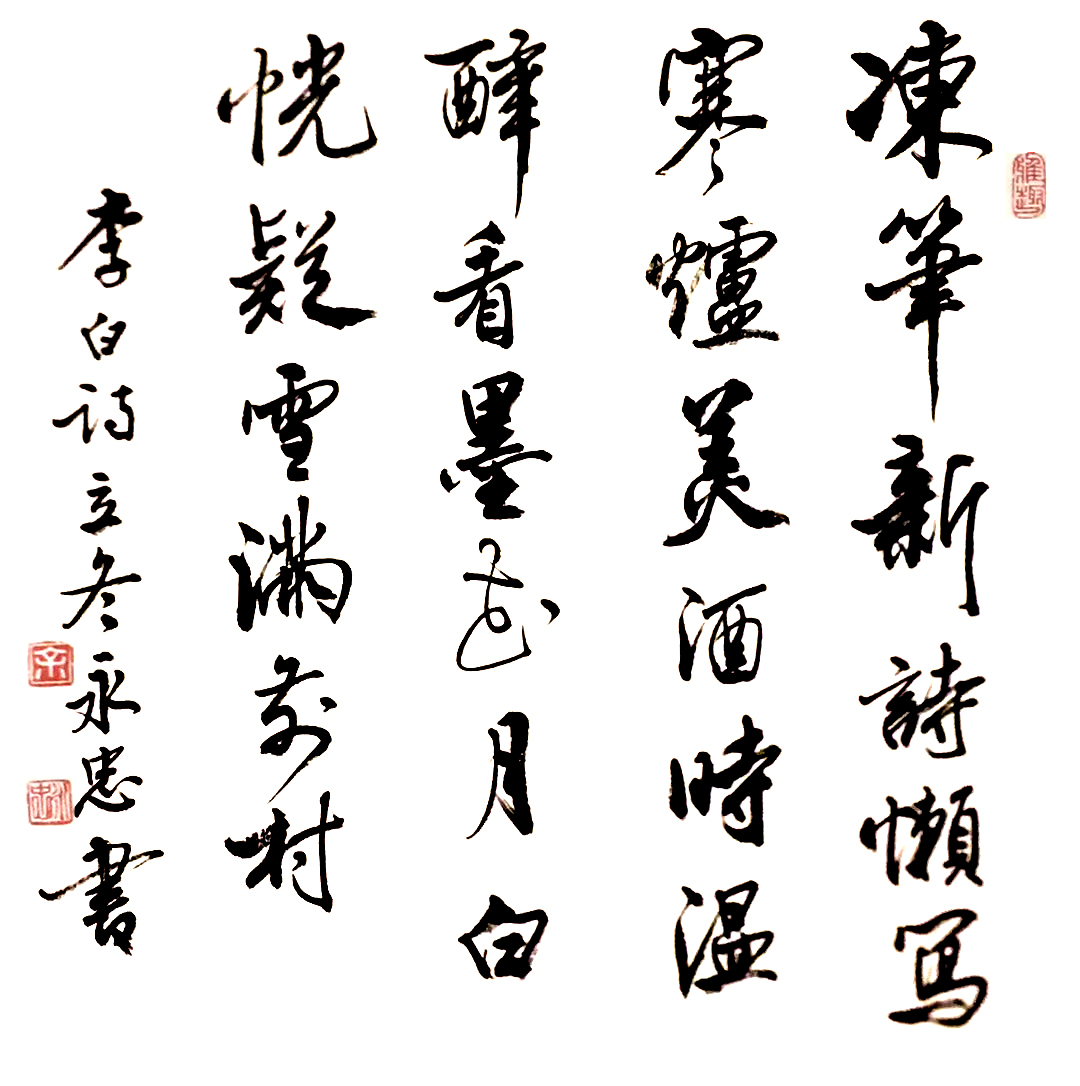 凍筆新詩懶寫
寒爐美酒時温
醉看墨花月白
恍疑雪滿前村
李白詩立冬永忠書
雅趣